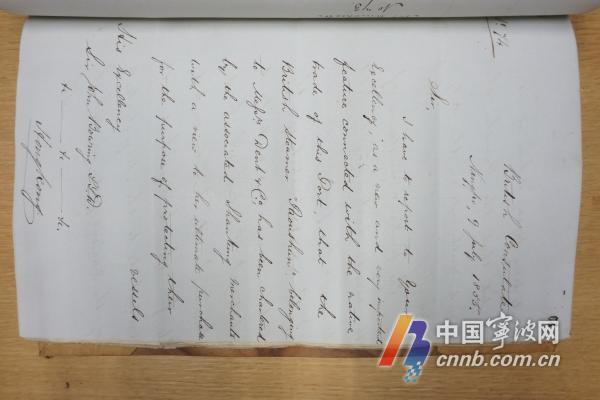 No 73
No. 74
British Consulate
Ningpo, 9 July 1855.
Sir,
I have to report to Your
Excellency as a new and very important
feature connected with the native
trade of this Port, that the
British Steamer "Paoushun" belonging
to Messrs Dent & Co. has been chartered
by the associated Shantung merchants
with a view to her ultimate purchase
for the purpose of protecting their
vessels
His Excellency
Sir John Bowring L.L.D.
&c &c &c
Hongkong
中国宁波网
cnnb.com.cn